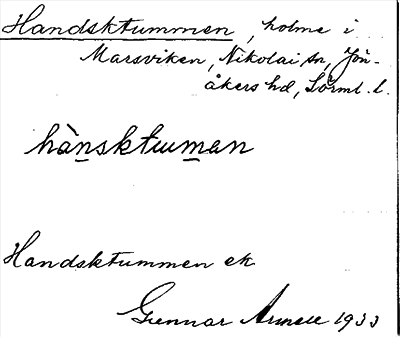 Handsktummen, holme i
Marsviken, Nikolai sn, Jön-
åkers hd, Sörml. l.
hànsktummen
Handsktummen ek
Gunnar Arnell 1933